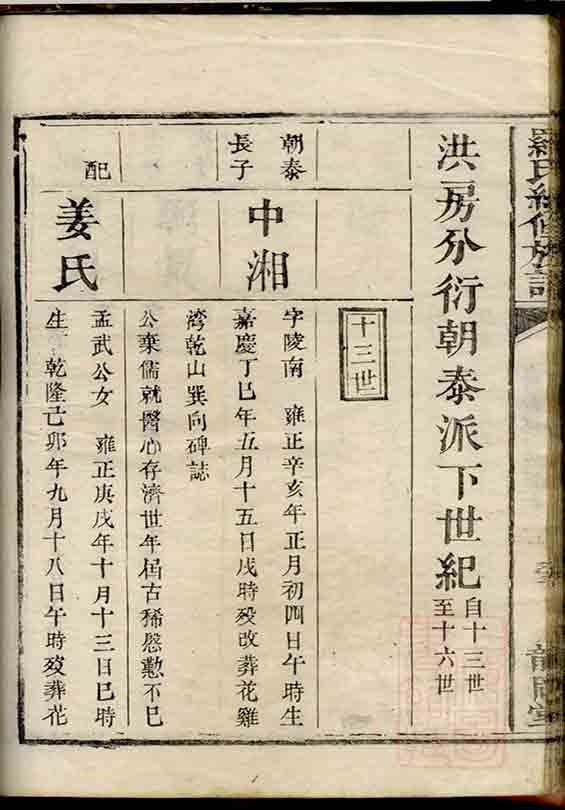 羅氏續修族譜
洪房分衍朝泰派下世紀自十三世至十六世
十三世
朝泰長子
中湘
字陵南 雍正辛亥年正月初四日午時生
嘉慶丁巳年五月十五日戌時歿改葬花雞
灣乾山巽向碑誌
公棄儒就醫心存濟世年屆古稀慇懃不已
配
姜氏
孟武公女 雍正庚戌年十月十三日巳時
生 乾隆己卯年九月十八日午時歿葬花